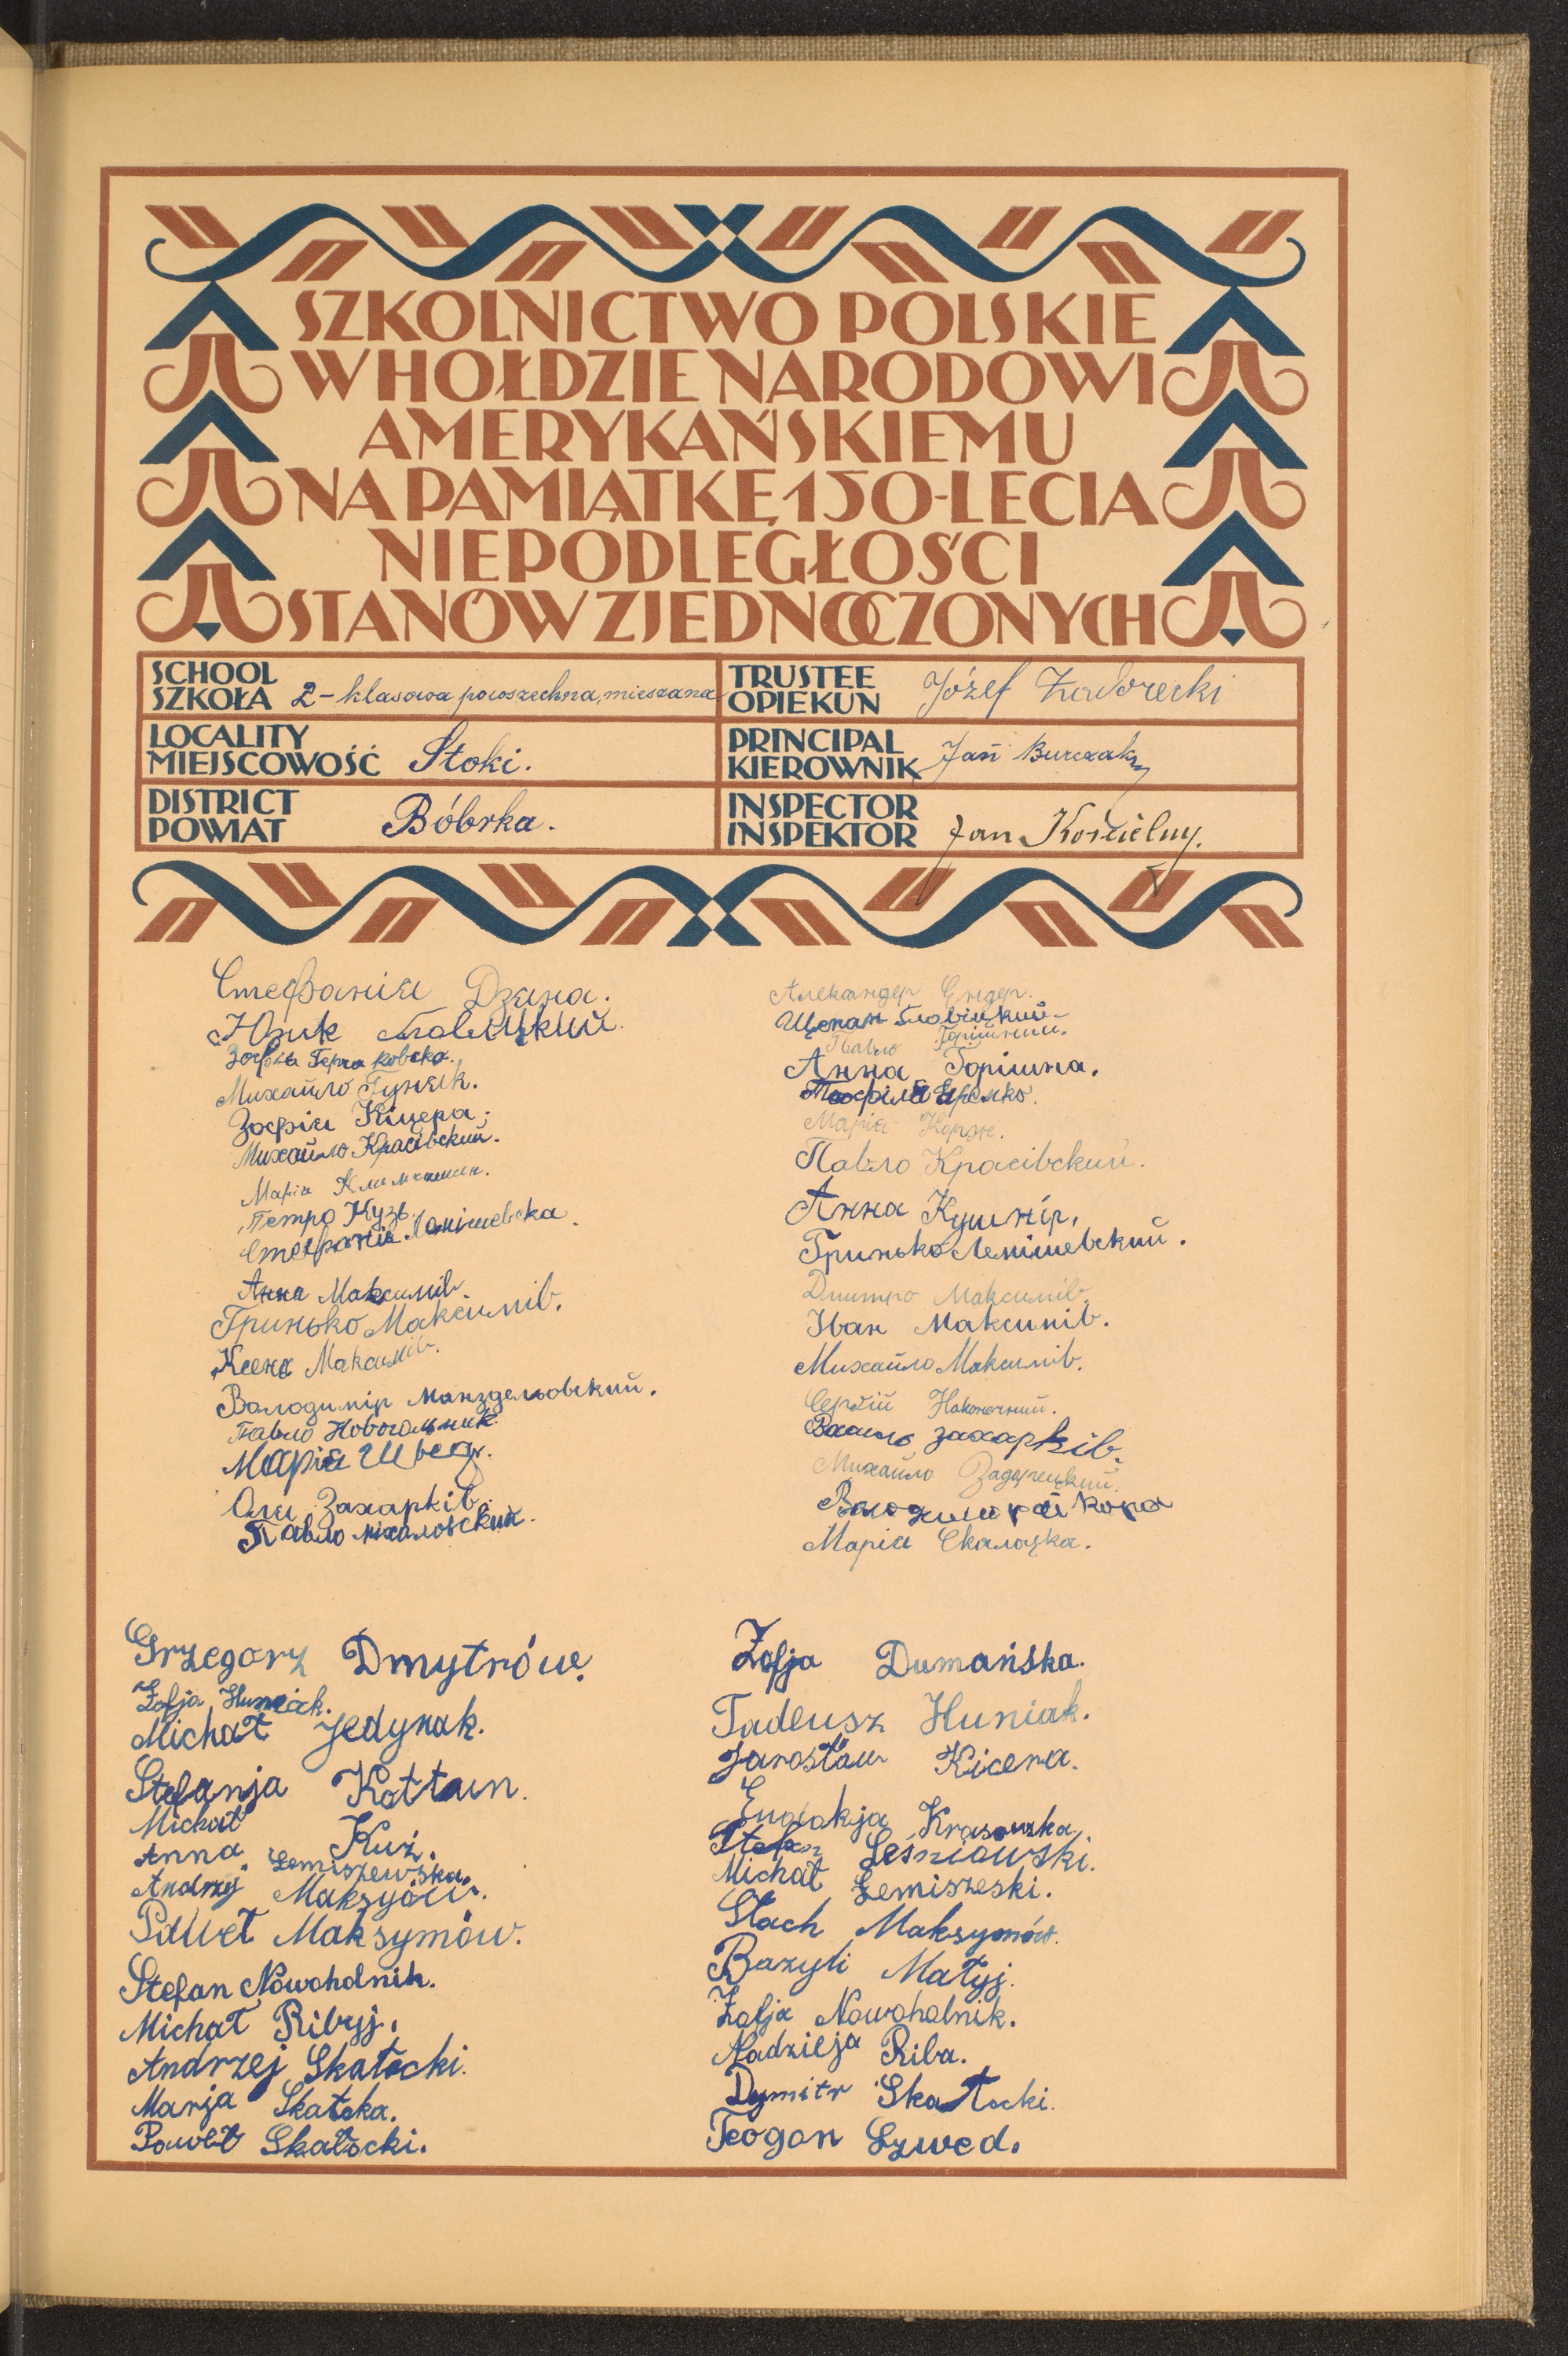 SZKOLNICTWO POLSKIE
W HOŁDZIE NARODOWI
AMERYKAŃSKIEMU
NA PAMIĄTKĘ 150-LECIA
NIEPODLEGŁOŚCI
STANÓW ZJEDNOCZONYCH
SCHOOL
SZKOŁA 2-klasowa powszechna, mieszana
TRUSTEE
OPIEKUN Józef
LOCALITY
MIEJSCOWOŚĆ Stoki.
PRINCIPAL
KIEROWNIK Jan Burczak
DISTRICT
POWIAT Bóbrka.
INSPECTOR
INSPEKTOR Jan Kościelny.
Стефанія Дзяна.
Юзик
Зофія
Михайло Гуняк.
Зофія Кіцера.
Михайло Красівский.
Марія
Петро Кузь.
Стефанія
Анна Максимів
Гринько Максимів.
Ксеня Максимів.
Володимір
Павло Новогольник.
Марія Швед.
Оля Захарків.
Павло Міхаловский.
Александер Ендер.
Щепан
Павло
Анна Горішна.
Марія Корж.
Павло Красівский.
Анна Кушнір.
Гринько Лемішевский.
Дмитро Максимів.
Іван Максимів.
Михайло Максимів.
Сергій Наконечний.
Захарків.
Михайло Задорецкий.
Марія Скалоцка.
Grzegorz Dmytrów.
Zofja Huniak.
Michał Jedynak.
Stefanja Kottun.
Michał Kuź.
Anna Lemiszewska.
Andrzej
Paweł Maksymów.
Stefan Nowoholnik.
Michał Ribyj.
Andrzej Skałocki.
Marja
Paweł Skałocki.
Zofja Dumańska.
Tadeusz Huniak.
Jarosław Kicera.
Krasowska.
Stefan Leśniowski.
Michał Lemiszeski.
Stach Maksymów.
Bazyli Matyj.
Zofja Nowoholnik.
Nadzieja Riba.
Dymitr Skałocki.
Teogon Szwed.